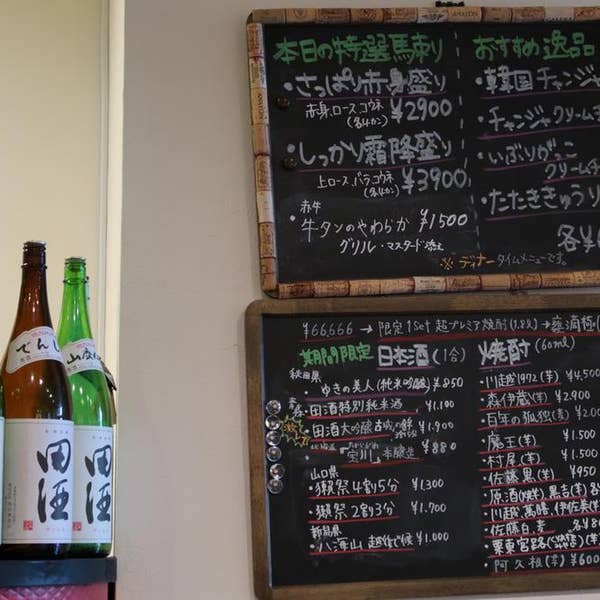 本日の特選馬刺り
・さっぱり赤身盛り
赤身、ロース、コウネ ¥2900
・しっかり霜降盛り
上ロース、バラ、コウネ ¥3900
赤牛
・牛タンのやわらか ¥1500
グリル・マスタード添え
おすすめ逸品
・韓国チャンジャ
・チャンジャクリームチ
・いぶりがっこ
クリームチ
・たたききゅうり
各¥
※ディナータイムメニューです。
¥66,666 → 限定1Set 超プレミア焼酎(1.8L)→
期間限定 日本酒(1合)
秋田県
・ゆきの美人(純米吟醸) ¥850
・田酒特別純米酒 ¥1.190
・田酒大吟醸 古城の錦 ¥1.900
本醸造 ¥880
山口県
・獺祭4割5分 ¥1.300
・獺祭2割3分 ¥1.700
新潟県
・八海山 越後で候 ¥1.000
焼酎(60ml)
・川越1972(芋) ¥4,500
・森伊蔵(芋) ¥2.900
・百年の孤独(麦) ¥2.00
・魔王(芋) ¥1.500
・村尾(芋) ¥1.500
・佐藤黒(芋) ¥950
・川越、萬膳、伊佐美(芋
・佐藤白麦 各¥80
・阿久根(芋) ¥600
でんし
田酒
山廃
田酒